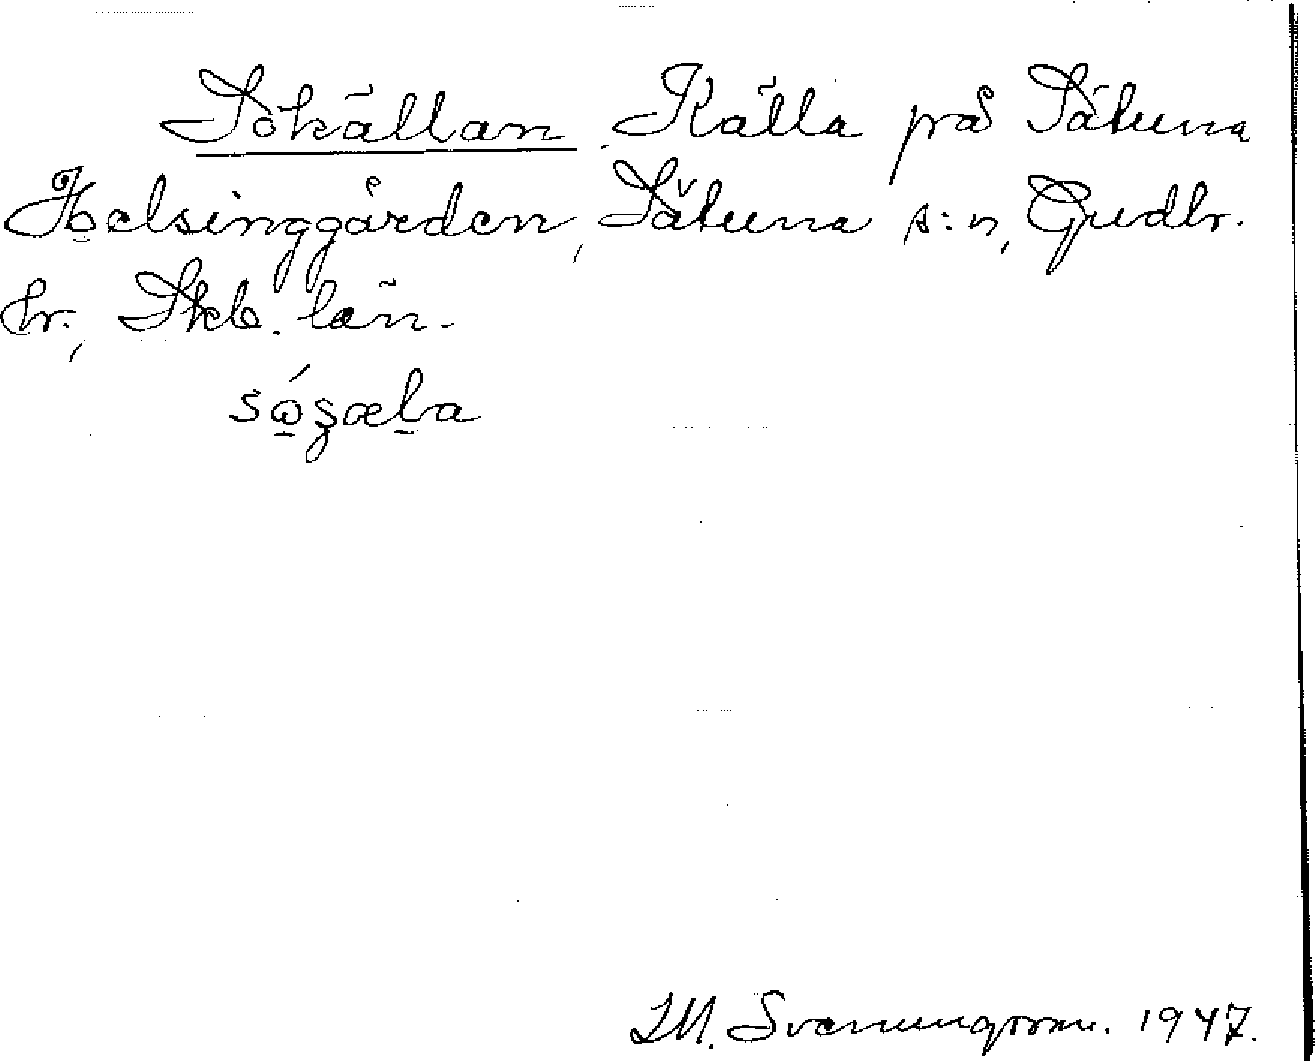 Sökällan Källa på Sätuna
Helsinggården, Sätuna s:n, Gudh.
hr., Skb. län.
M. Svenungsson. 1947.